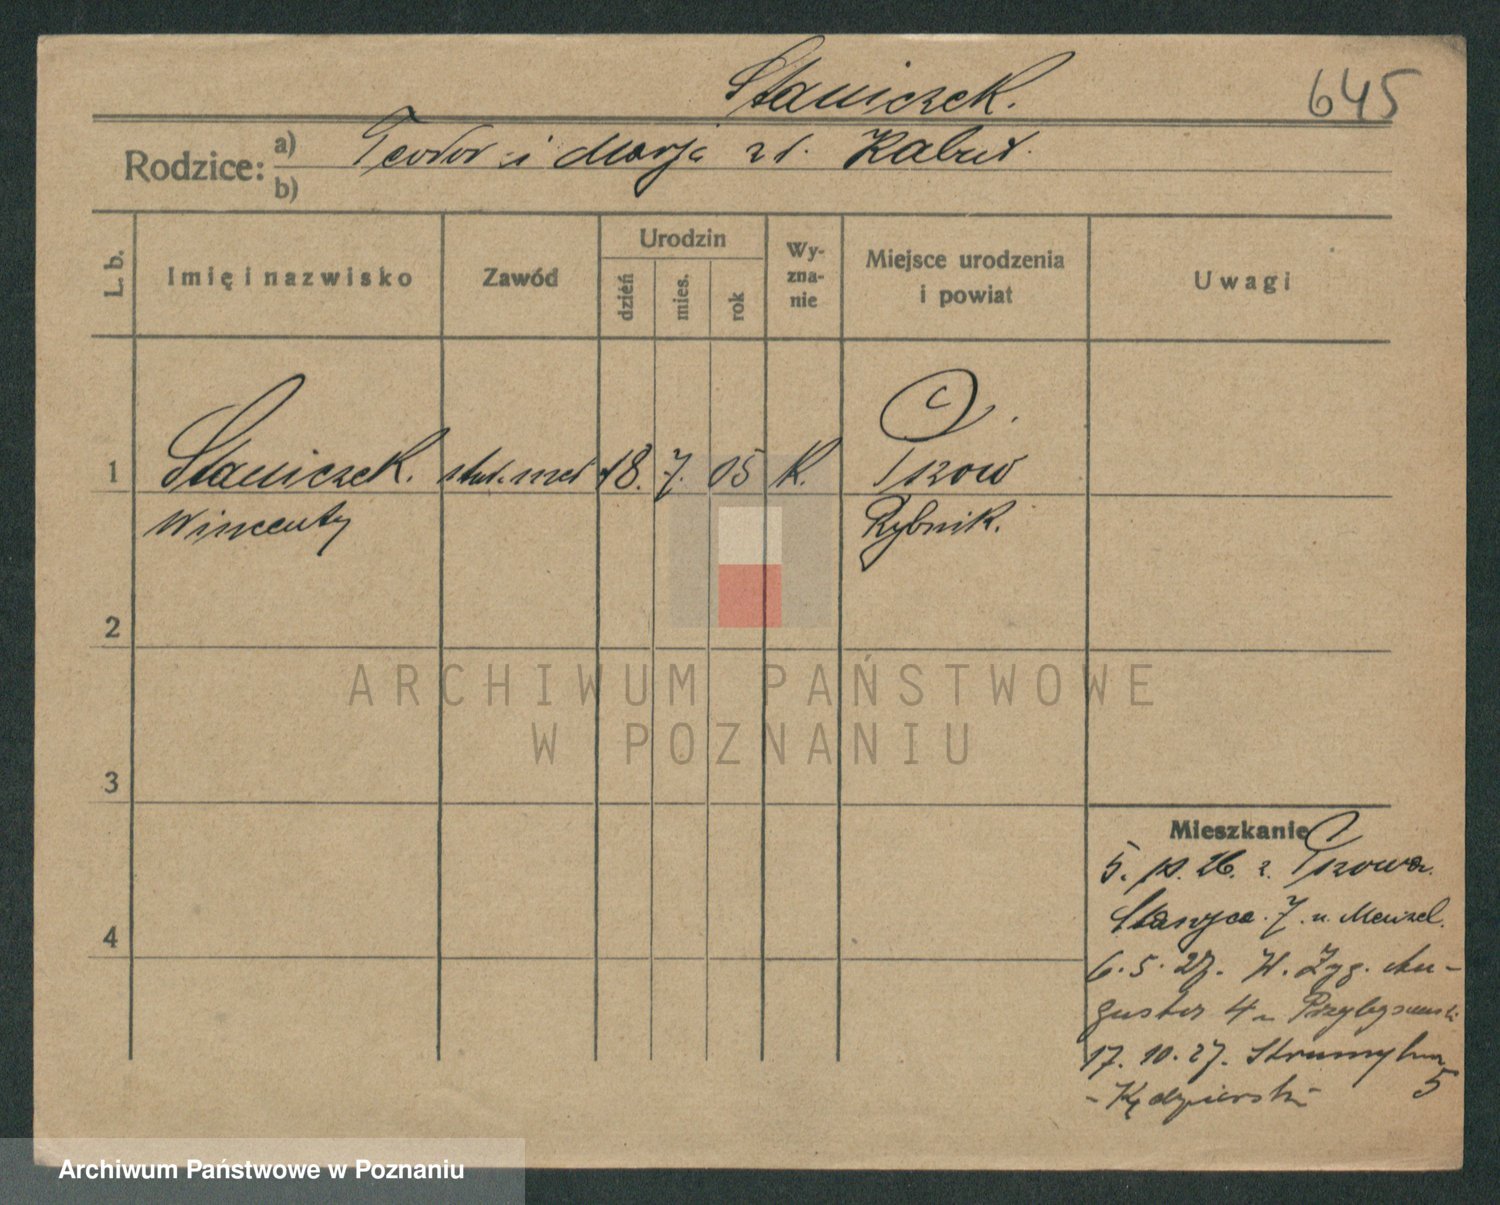 Staniczek.
645
Rodzice: a) Teodor i Marja zd. Kabut.
b)
L. b. Imię i nazwisko Zawód Urodzin dzień mies. rok Wyznanie Miejsce urodzenia i powiat Uwagi
1 Staniczek. stud. med 18. 7. 05 K. Pszów
Wincenty Rybnik.
2
ARCHIWUM PAŃSTWOWE
W POZNANIU
3
Mieszkanie
5. 26. z. Pszowa.
4
Stanyca. 7. u. Menzel.
6. 5. 27. W. Zyg. Au-
gusta 4 u Przybyszewski
17. 10. 27. Strumykowa 5
- Kędzierski -
Archiwum Państwowe w Poznaniu